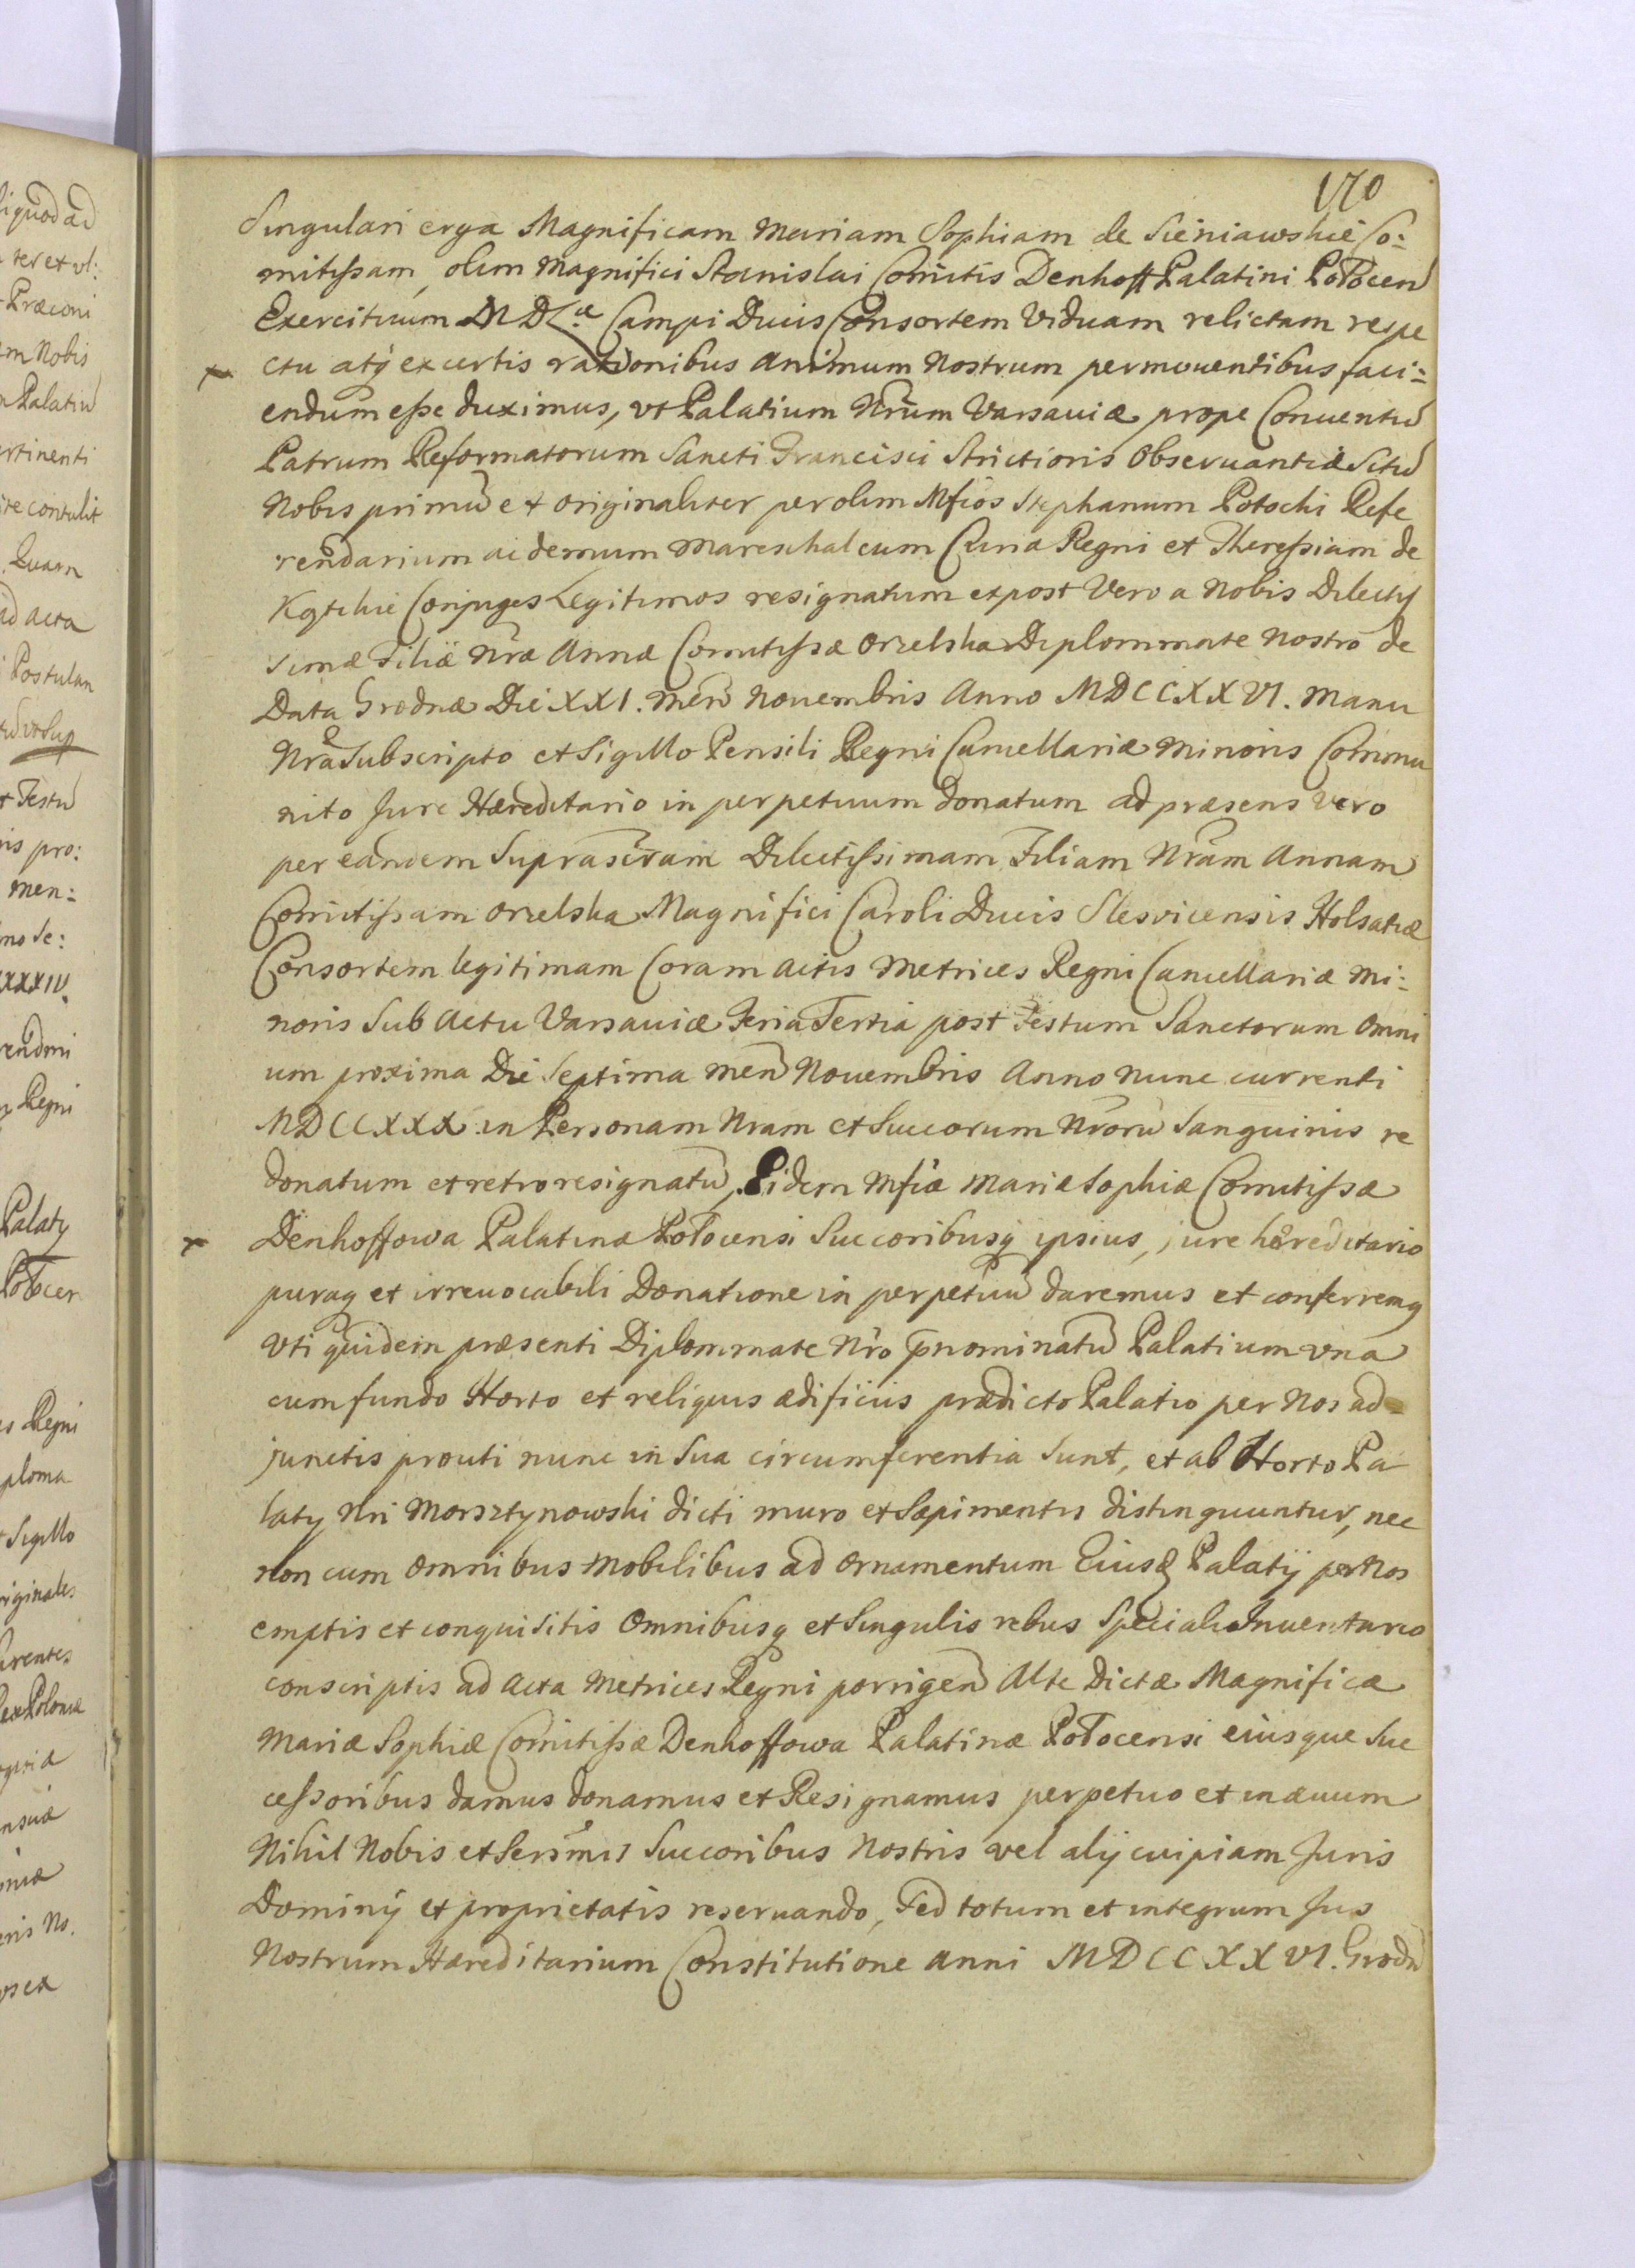 170
Singulari erga Magnificam Mariam Sophiam de Sieniawskie Co:
mitissam, olim Magnifici Stanislai Comitis Denhoff Palatini Połocen
Exercituum M D L æ Campi Ducis Consortem Viduam relictam respe
ctu atq ex certis rationibus animum Nostrum permouentibus faci:
endum esse duximus, vt Palatium Nrum Varsauiæ prope Conuentu
Patrum Reformatorum Sancti Francisci Strictioris Obseruantiæ Situ
Nobis primu et originaliter per olim Mficos Stephanum Potocki Refe
rendarium ac demum Mareschalcum Curiæ Regni et Theressiam de
Kątckie Conjuges Legitimos resignatum et post Vero a Nobis Dilectis
simæ Filiæ Nræ Annæ Comitissæ Orzelska Diplommate Nostro de
Data Grodnæ Die XXI. Men Nouembris Anno MDCCXXVI. Manu
Nra Subscripto et Sigillo Pensili Regni Cancellariæ Minoris Commu
nito Jure Hæreditario in perpetuum donatum ad præsens vero
per eandem Suprascram Dilectissimam Filiam Nram Annam
Comitissam Orzelska Magnifici Caroli Ducis Slesvicensis Holsatiæ
Consortem legitimam Coram Actis Metrices Regni Cancellariæ Mi:
noris Sub Actu Varsauiæ Feria Tertia post Festum Sanctorum Omni
um proxima Die Septima Men Nouembris Anno nunc currenti
MDCCXXX in Personam Nram et Succorum Nroru Sanguinis re
donatum et retro resignatu, Eidem Mficæ Mariæ Sophiæ Comitissæ
Denhoffowa Palatinæ Połocensi Succoribusq ipsius, jure hæreditario
puraq et irreuocabili Donatione in perpetuu daremus et conferremq
Vti quidem præsenti Diplommate Nro pnominatu Palatium vna
cum fundo Horto et reliquis ædificiis prædicto Palatio per Nos ad=
junctis prouti nunc in Sua circumferentia Sunt, et ab Horto Pa
latij Nri Morsztynowski dicti muro et Sæpimentis distinguuntur, nec
non cum omnibus Mobilibus ad ornamentum Eiusd Palatij per Nos
emptis et conquisitis Omnibusq et Singulis rebus Speciali Inuentario
conscriptis ad Acta Metrices Regni porrigen Alte Dictæ Magnificæ
Mariæ Sophiæ Comitissæ Denhoffowa Palatinæ Połocensi eiusque Suc
cessoribus damus donamus et Resignamus perpetuo et in æuum
Nihil Nobis et Serśmis Succoribus Nostris vel alij cuipiam Juris
Dominij et proprietatis reseruando, Sed totum et integrum Jus
Nostrum Hæreditarium Constitutione Anni MDCCXXVI. Grodn